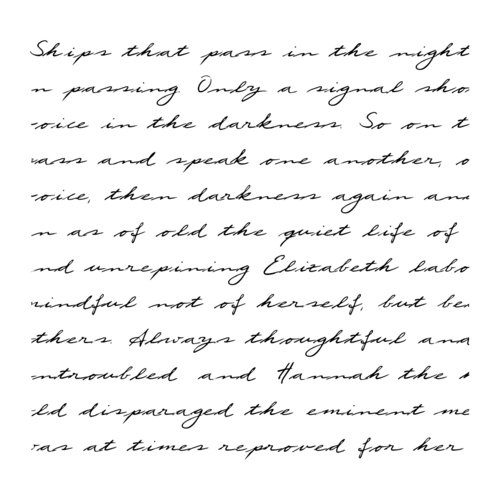 Ships that pass in the night
n passing Only a signal sho
oice in the darkness. So on t
ass and speak one another, o
oice, then darkness again an
n as of old the quiet life of
nd unrepining Elizabeth labo
indful not of herself, but be
thers. Always thoughtful and
ntroubled and Hannah the
ld disparaged the eminent me
as at times reproved for her